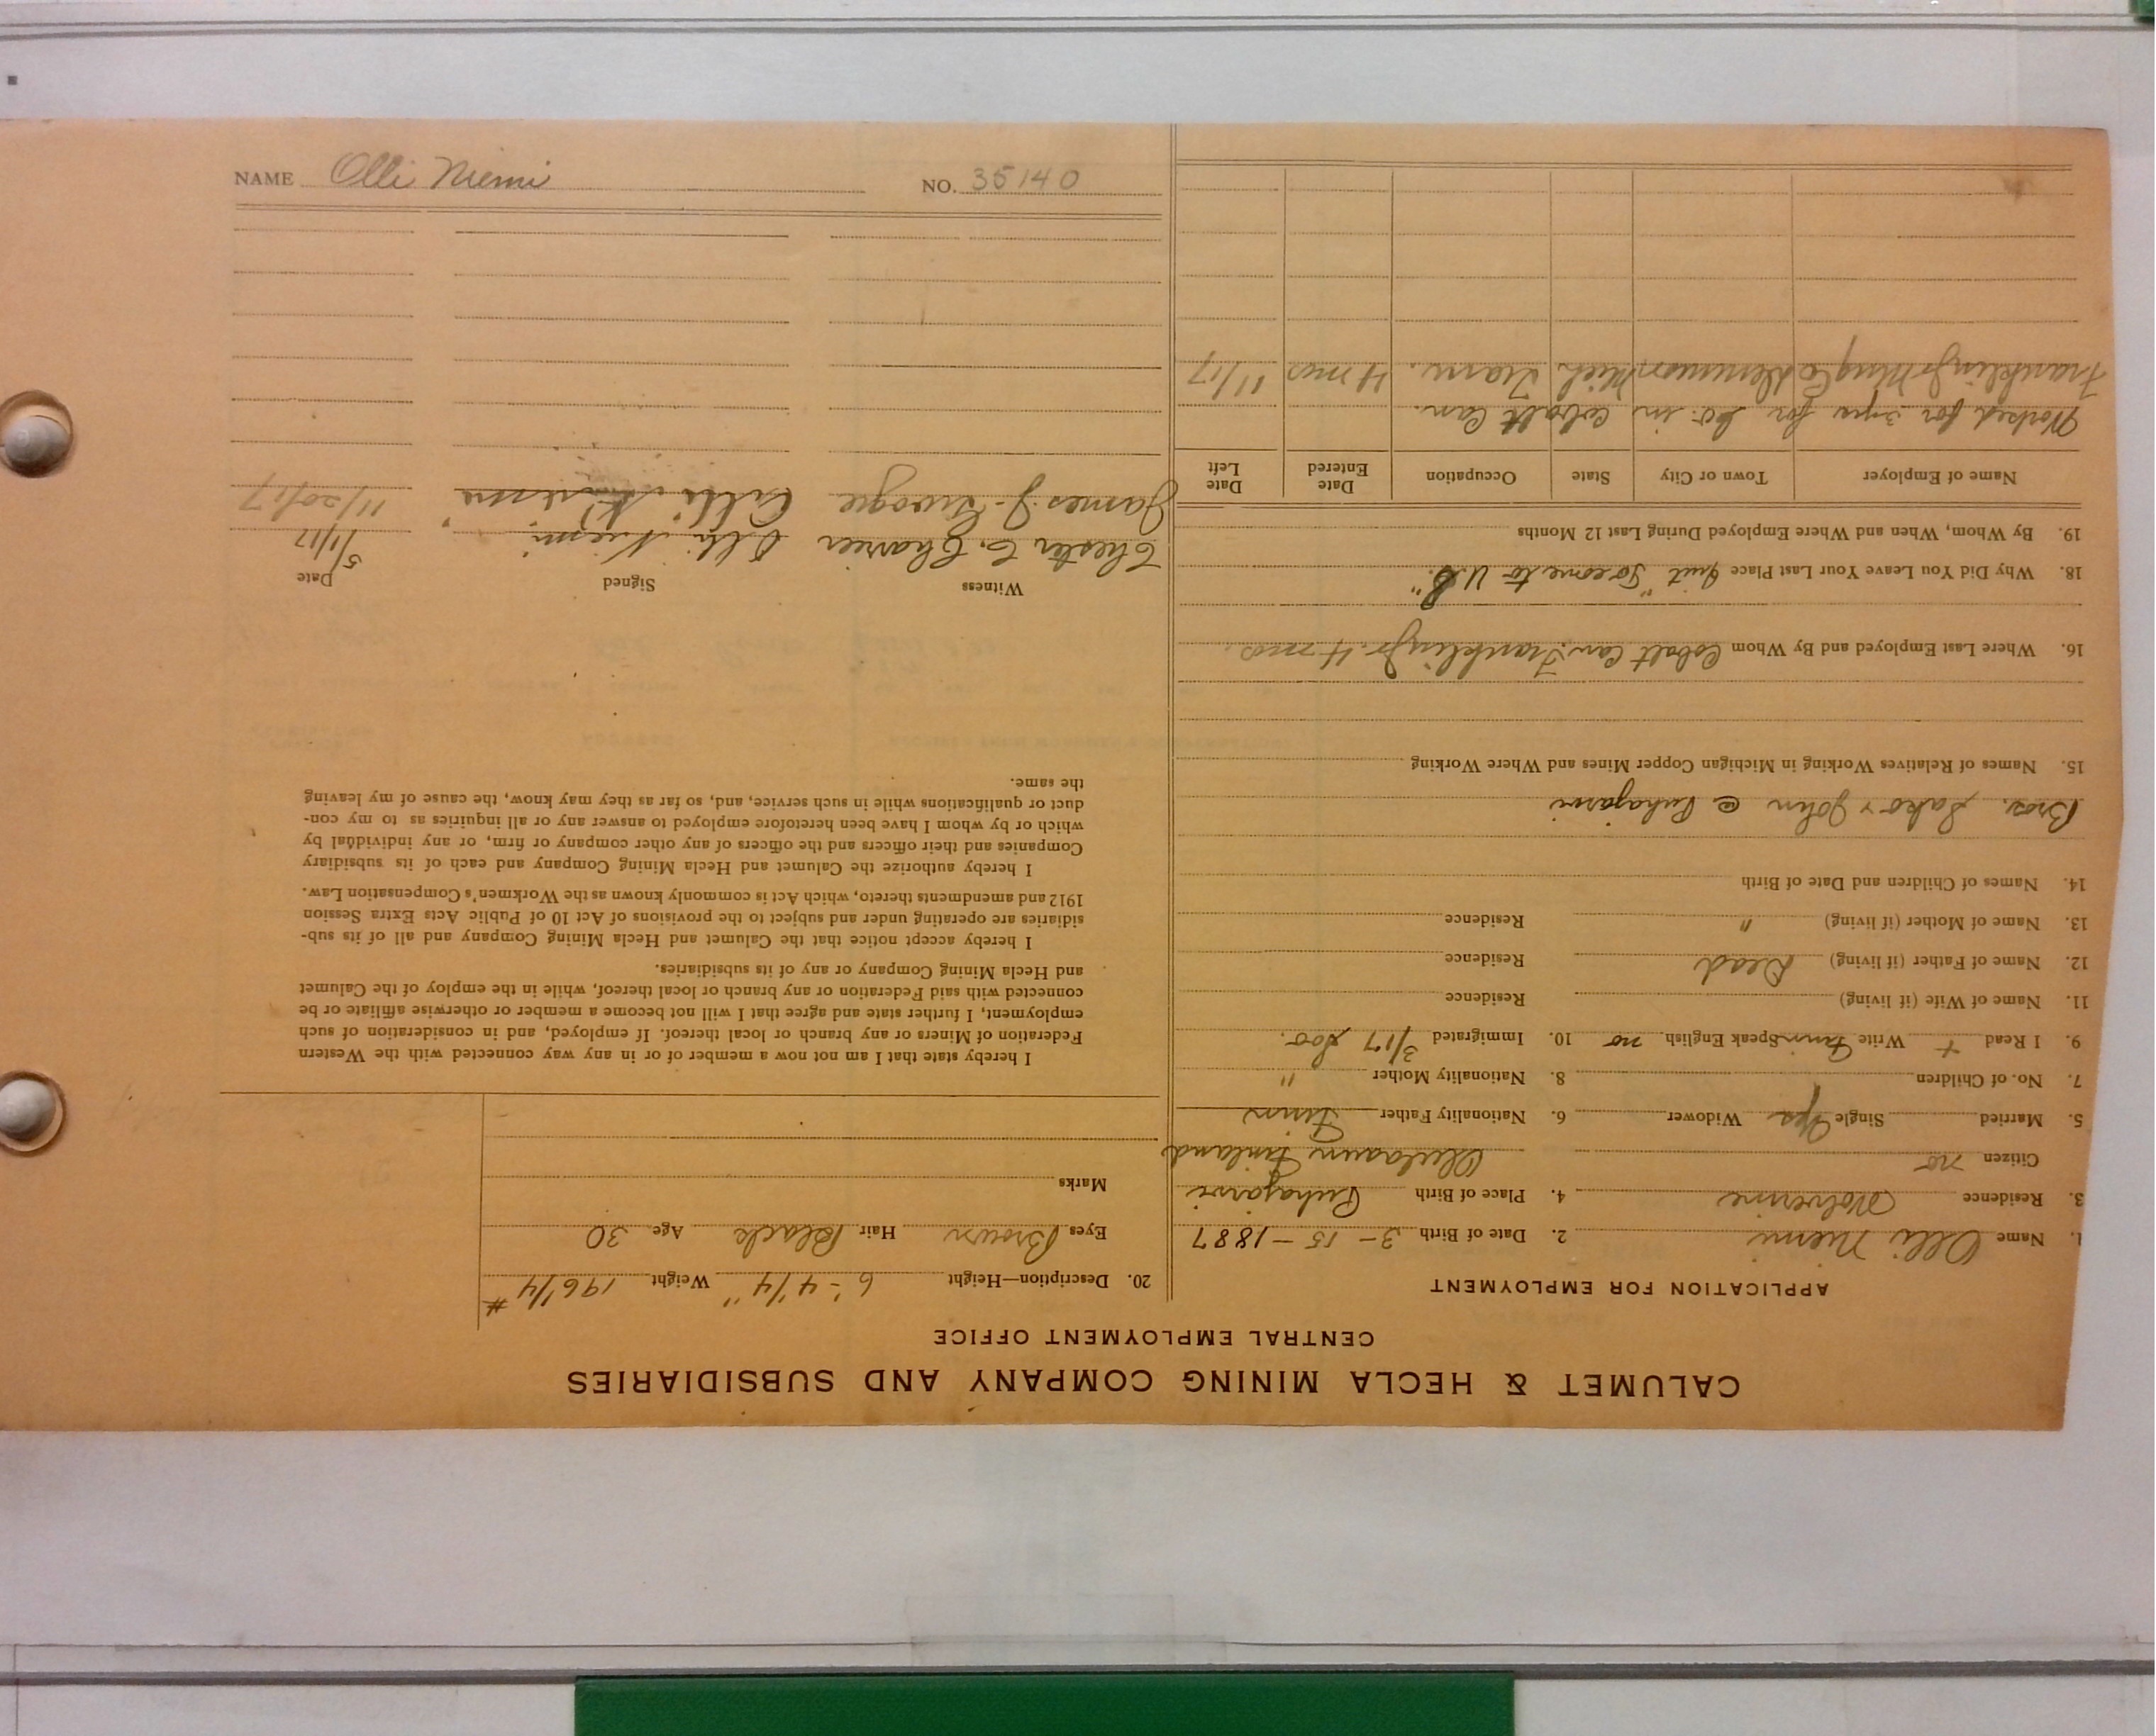 CALUMET & HECLA MINING COMPANY AND SUBSIDIARIES
CENTRAL EMPLOYMENT OFFICE
APPLICATION FOR EMPLOYMENT
1. Name Olli Niemi 2. Date of Birth 3-15-1887
3. Residence Wolverine 4. Place of Birth Puhajarvi
Citizen no Oulu Finland
5. Married Single Yes Widower 6. Nationality Father Finn
7. No. of Children 8. Nationality Mother "
9. I Read + Write Finn Speak English no 10. Immigrated 3/17 Soo.
11. Name of Wife (if living) Residence
12. Name of Father (if living) Dead Residence
13. Name of Mother (if living) " Residence
14. Names of Children and Date of Birth
Bros. & John @ Puhajarvi
15. Names of Relatives Working in Michigan Copper Mines and Where Working
16. Where Last Employed and By Whom Cobalt Can. Franklin Jr. 4 mos.
18. Why Did You Leave Your Last Place Quit "To come to U.S."
19. By Whom, When and Where Employed During Last 12 Months
Name of Employer Town or City State Occupation Date Entered Date Left
Worked for 3 yrs for Co. in Cobalt Can.
Franklin Jr Mng Co Demmon Mich Tram. 4 mos 11/17
20. Description—Height 6'-4 1/4" Weight 196 1/4 #
Eyes Brown Hair Black Age 30
Marks
I hereby state that I am not now a member of or in any way connected with the Western
Federation of Miners or any branch or local thereof. If employed, and in consideration of such
employment, I further state and agree that I will not become a member or otherwise affiliate or be
connected with said Federation or any branch or local thereof, while in the employ of the Calumet
and Hecla Mining Company or any of its subsidiaries.
I hereby accept notice that the Calumet and Hecla Mining Company and all of its sub-
sidiaries are operating under and subject to the provisions of Act 10 of Public Acts Extra Session
1912 and amendments thereto, which Act is commonly known as the Workmen's Compensation Law.
I hereby authorize the Calumet and Hecla Mining Company and each of its subsidiary
Companies and their officers and the officers of any other company or firm, or any individual by
which or by whom I have been heretofore employed to answer any or all inquiries as to my con-
duct or qualifications while in such service, and, so far as they may know, the cause of my leaving
the same.
Witness Signed Date
Chester C. Olli Niemi 5/1/17
James J. Olli Niemi 11/20/17
NAME Olli Niemi NO. 35140